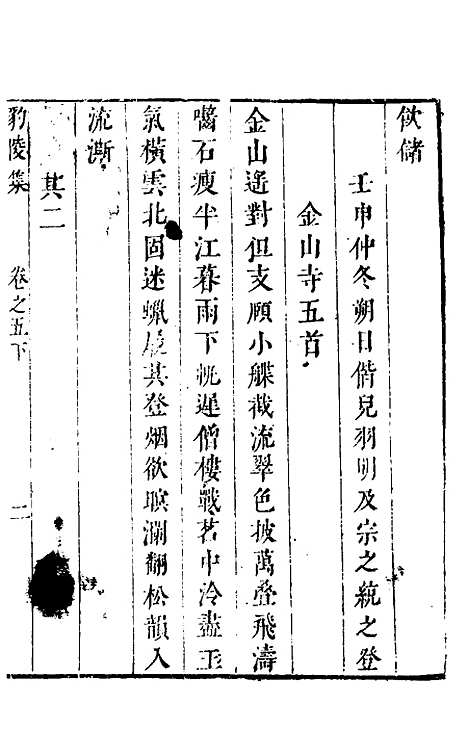 飲儲
壬申仲冬朔日偕兒羽明及宗之統之登
金山寺五首
金山遙對但支頤小艓截流翠色披萬疊飛濤
嚙石瘦半江暮雨下帆遲僧樓戰茗中泠盡玉
氣橫雲北固迷蠟屐其登烟欲暝瀾翻松韻入
流澌
其二
豹陵集
卷之五下
二